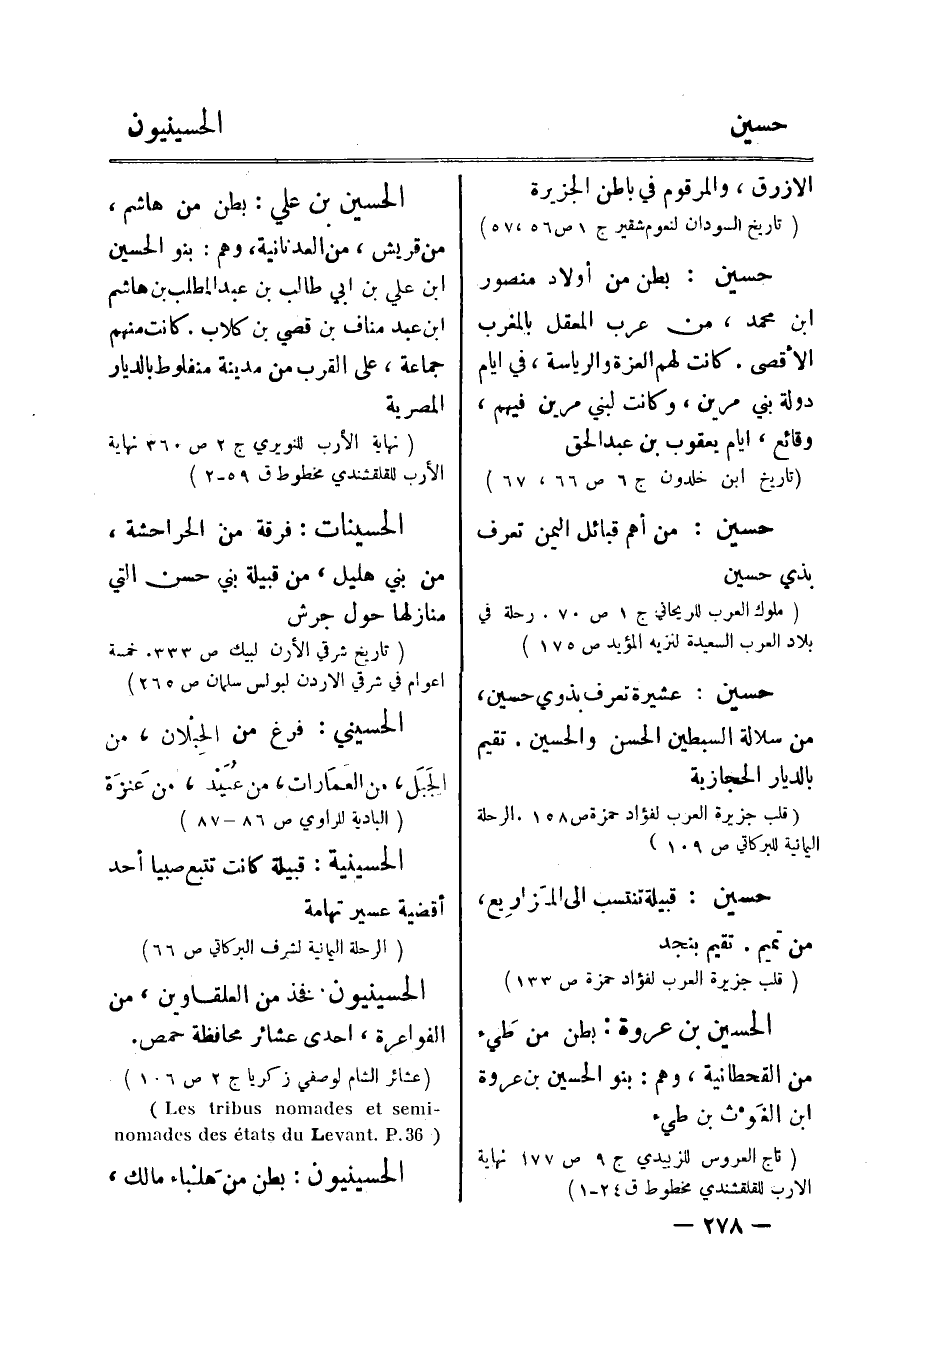 حسين
الحسينيون
الازرق ، والمرقوم في باطن الجزيرة
( تاريخ السودان لنعوم شقير ج ١ ص ٥٦ ، ٥٧ )
حسين : بطن من أولاد منصور
ابن محمد ، من عرب المعقل بالمغرب
الأقصى . كانت لهم العزة والرياسة ، في ايام
دولة بني مرين ، وكانت لبني مرين فيهم ،
وقائع ، ايام يعقوب بن عبدالحق
( تاريخ ابن خلدون ج ٦ ص ٦٦ ، ٦٧ )
حسين : من أهم قبائل اليمن تعرف
بذي حسين
( ملوك العرب للريحاني ج ١ ص ٧٠ . رحلة في
بلاد العرب السعيدة لنزيه المؤيد ص ١٧٥ )
حسين : عشيرة تعرف بذوي حسين،
من سلالة السبطين الحسن والحسين . تقيم
بالديار الحجازية
( قلب جزيرة العرب لفؤاد حمزة ص ١٥٨ . الرحلة
اليمانية للبركاتي ص ١٠٩ )
حسين : قبيلة تنتسب الى المزاريع،
من تميم . تقيم بنجد
( قلب جزيرة العرب لفؤاد حمزة ص ١٣٣ )
الحسين بن عروة : بطن من طيء
من القحطانية ، وهم : بنو الحسين بن عروة
ابن الغوث بن طيء
( تاج العروس للزبيدي ج ٩ ص ١٧٧ نهاية
الارب للقلقشندي مخطوط ق ٢٤-١ )
الحسين بن علي : بطن من هاشم ،
من قريش ، من العدنانية، وهم : بنو الحسين
ابن علي بن ابي طالب بن عبدالمطلب بن هاشم
ابن عبد مناف بن قصي بن كلاب . كانت منهم
جماعة ، على القرب من مدينة منفلوط بالديار
المصرية
( نهاية الأرب للنويري ج ٢ ص ٣٦٠ نهاية
الأرب للقلقشندي مخطوط ق ٥٩-٢ )
الحسينات : فرقة من الحراحشة ،
من بني هليل ، من قبيلة بني حسن التي
منازلها حول جرش
( تاريخ شرقي الأرن لبيك ص ٣٣٣. خمسة
اعوام في شرقي الاردن لبولس سلمان ص ٢٦٥ )
الحسيني : فرغ من الجِبْلان ، من
الجَبَل ، من العمَارات ، من عُبَيْد ، من عَنَزَة
( البادية للراوي ص ٨٦ – ٨٧ )
الحسينية : قبيلة كانت تتبع صبيا أحد
أقضية عسير تهامة
( الرحلة اليمانية لشرف البركاتي ص ٦٦ )
الحسينيون : فخذ من العلقاوين ، من
الفواعرة ، احدى عشائر محافظة حمص.
( عشائر الشام لوصفي زكريا ج ٢ ص ١٠٦ )
( Les tribus nomades et semi-
nomades des états du Levant. P.36 )
الحسينيون : بطن من هَلْباء مالك ،
— ٢٧٨ —